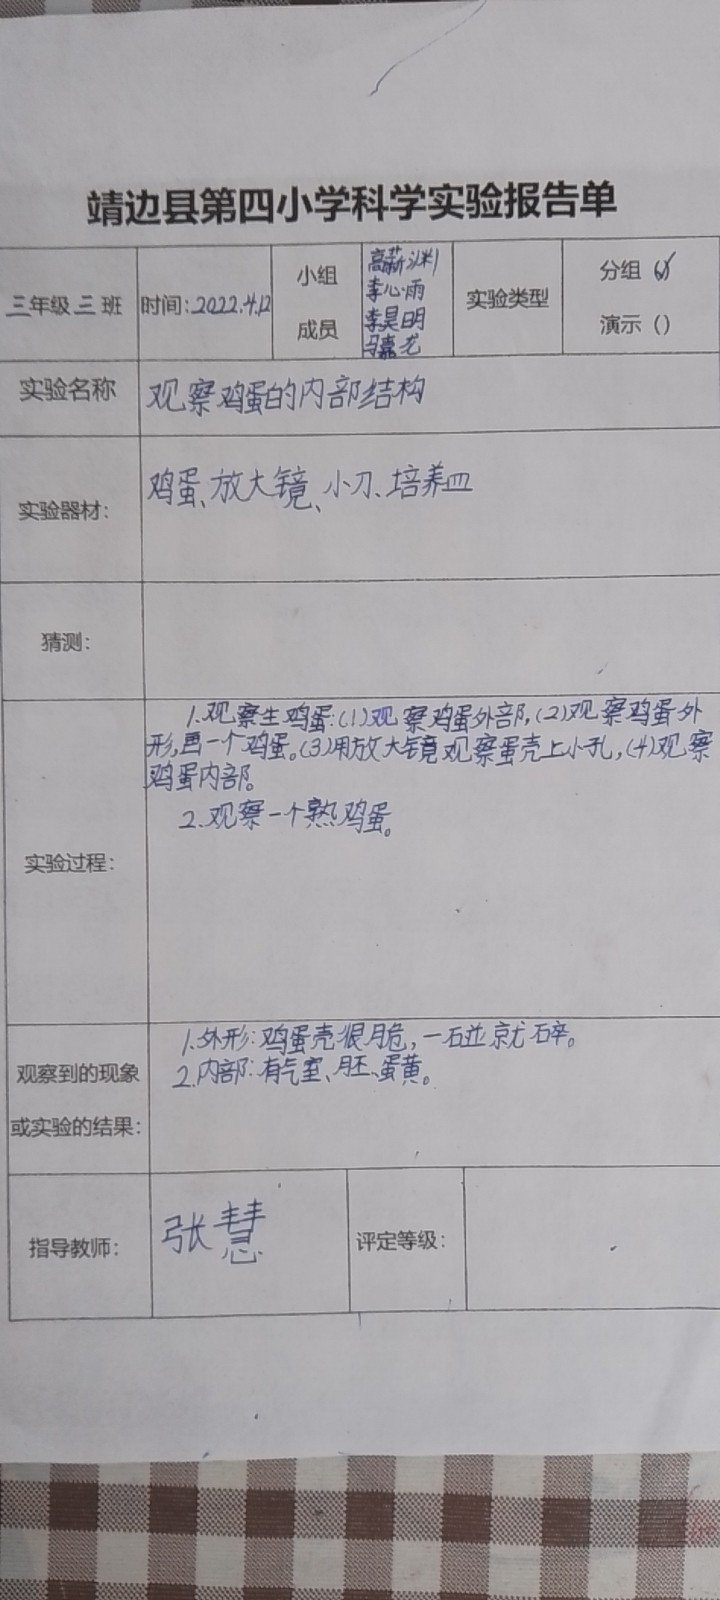 靖边县第四小学科学实验报告单
三年级三班
时间:2022.4.12
小组
成员
高薪渊
李心雨
李昊明
马嘉尤
实验类型
分组(√)
演示()
实验名称
观察鸡蛋的内部结构
实验器材:
鸡蛋、放大镜、小刀、培养皿
猜测:
实验过程:
1.观察生鸡蛋:(1)观察鸡蛋外部,(2)观察鸡蛋外
形,画一个鸡蛋。(3)用放大镜观察蛋壳上小孔,(4)观察
鸡蛋内部。
2.观察一个熟鸡蛋。
观察到的现象
或实验的结果:
1.外形:鸡蛋壳很脆,一碰就碎。
2.内部:有气室、胚、蛋黄。
指导教师:
张慧
评定等级: